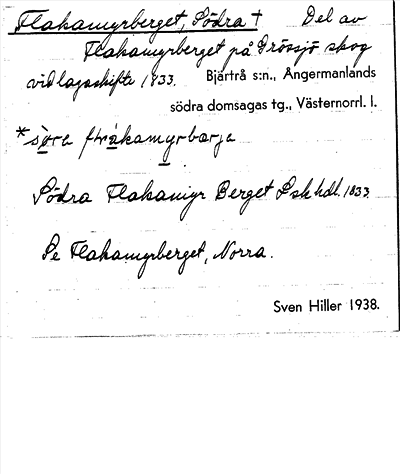 Flakamyrberget, Södra † Del av
Flakamyrberget på Grössjö skog
vid lagaskifte 1833. Bjärtrå s:n., Ångermanlands
södra domsagas tg., Västernorrl. l.
*söra flakamyrbærje
Södra Flakamyr Berget Lsk hdl. 1833.
Se Flakamyrberget, Norra.
Sven Hiller 1938.